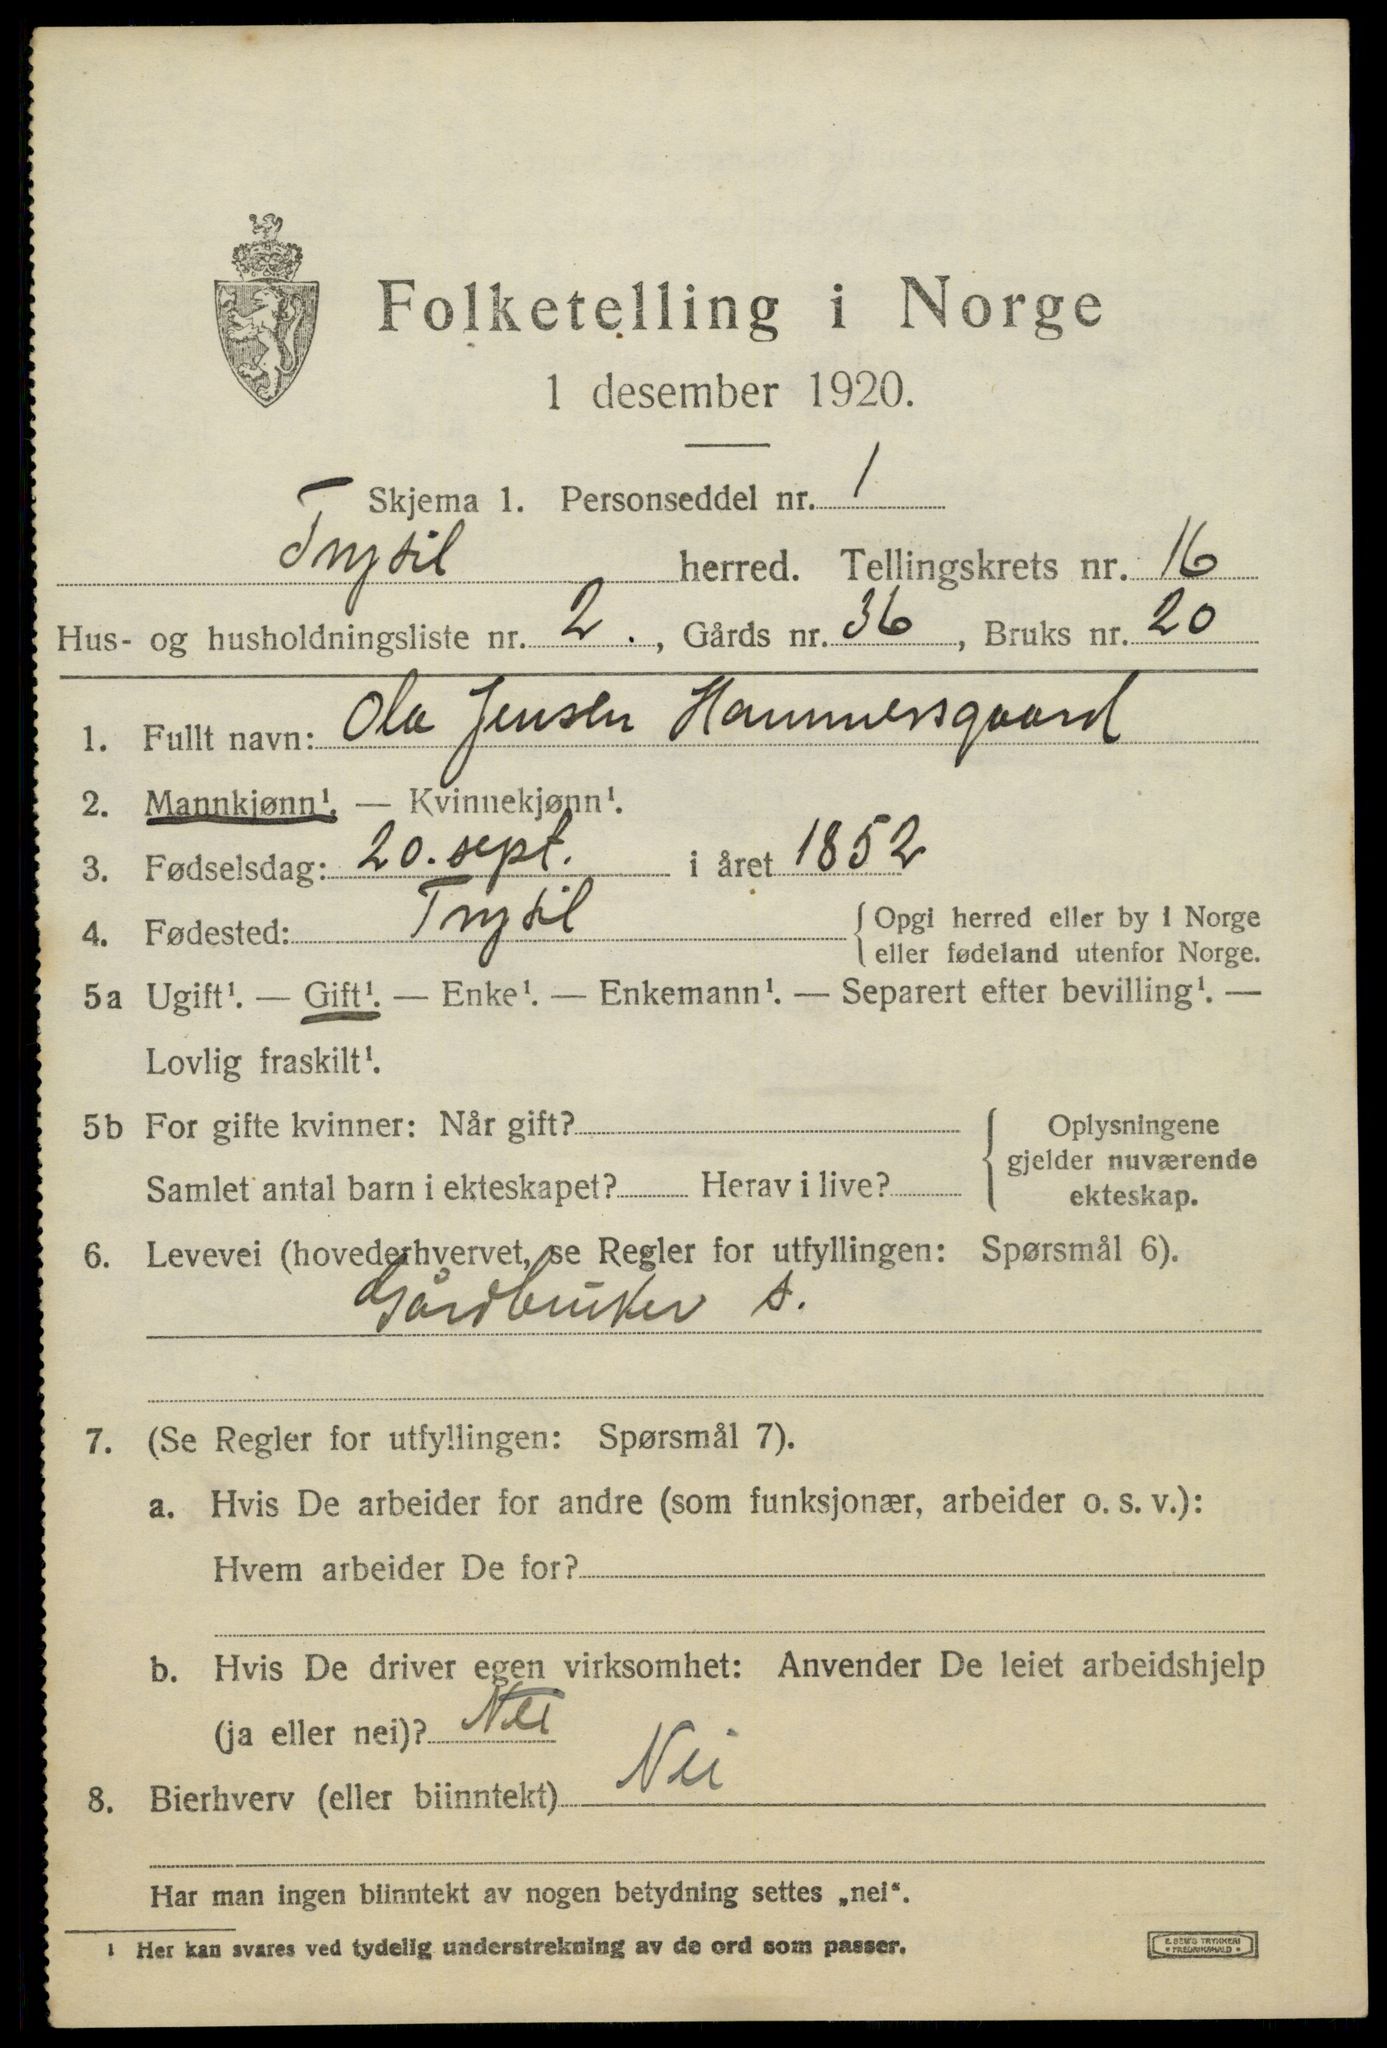 Folketelling i Norge
1 desember 1920.
Skjema 1. Personseddel nr. 1
Trysil herred. Tellingskrets nr. 16
Hus- og husholdningsliste nr. 2. , Gårds nr. 36 , Bruks nr. 20
1. Fullt navn: Ola Jensen Hammersgaard
2. Mannkjønn¹. — Kvinnekjønn¹.
3. Fødselsdag: 20. sept. i året 1852
4. Fødested: Trysil { Opgi herred eller by i Norge
eller fødeland utenfor Norge.
5a Ugift¹. — Gift¹. — Enke¹. — Enkemann¹. — Separert efter bevilling¹. —
Lovlig fraskilt¹.
5b For gifte kvinner: Når gift? { Oplysningene
gjelder nuværende
Samlet antal barn i ekteskapet? Herav i live? ekteskap.
6. Levevei (hovederhvervet, se Regler for utfyllingen: Spørsmål 6).
Gårdbruker s.
7. (Se Regler for utfyllingen: Spørsmål 7).
a. Hvis De arbeider for andre (som funksjonær, arbeider o. s. v.):
Hvem arbeider De for?
b. Hvis De driver egen virksomhet: Anvender De leiet arbeidshjelp
(ja eller nei)? Nei
8. Bierhverv (eller biinntekt) Nei
Har man ingen biinntekt av nogen betydning settes „nei“.
¹ Her kan svares ved tydelig understrekning av de ord som passer.
E. SEM'S TRYKKERI
• FREDRIKSHALD •